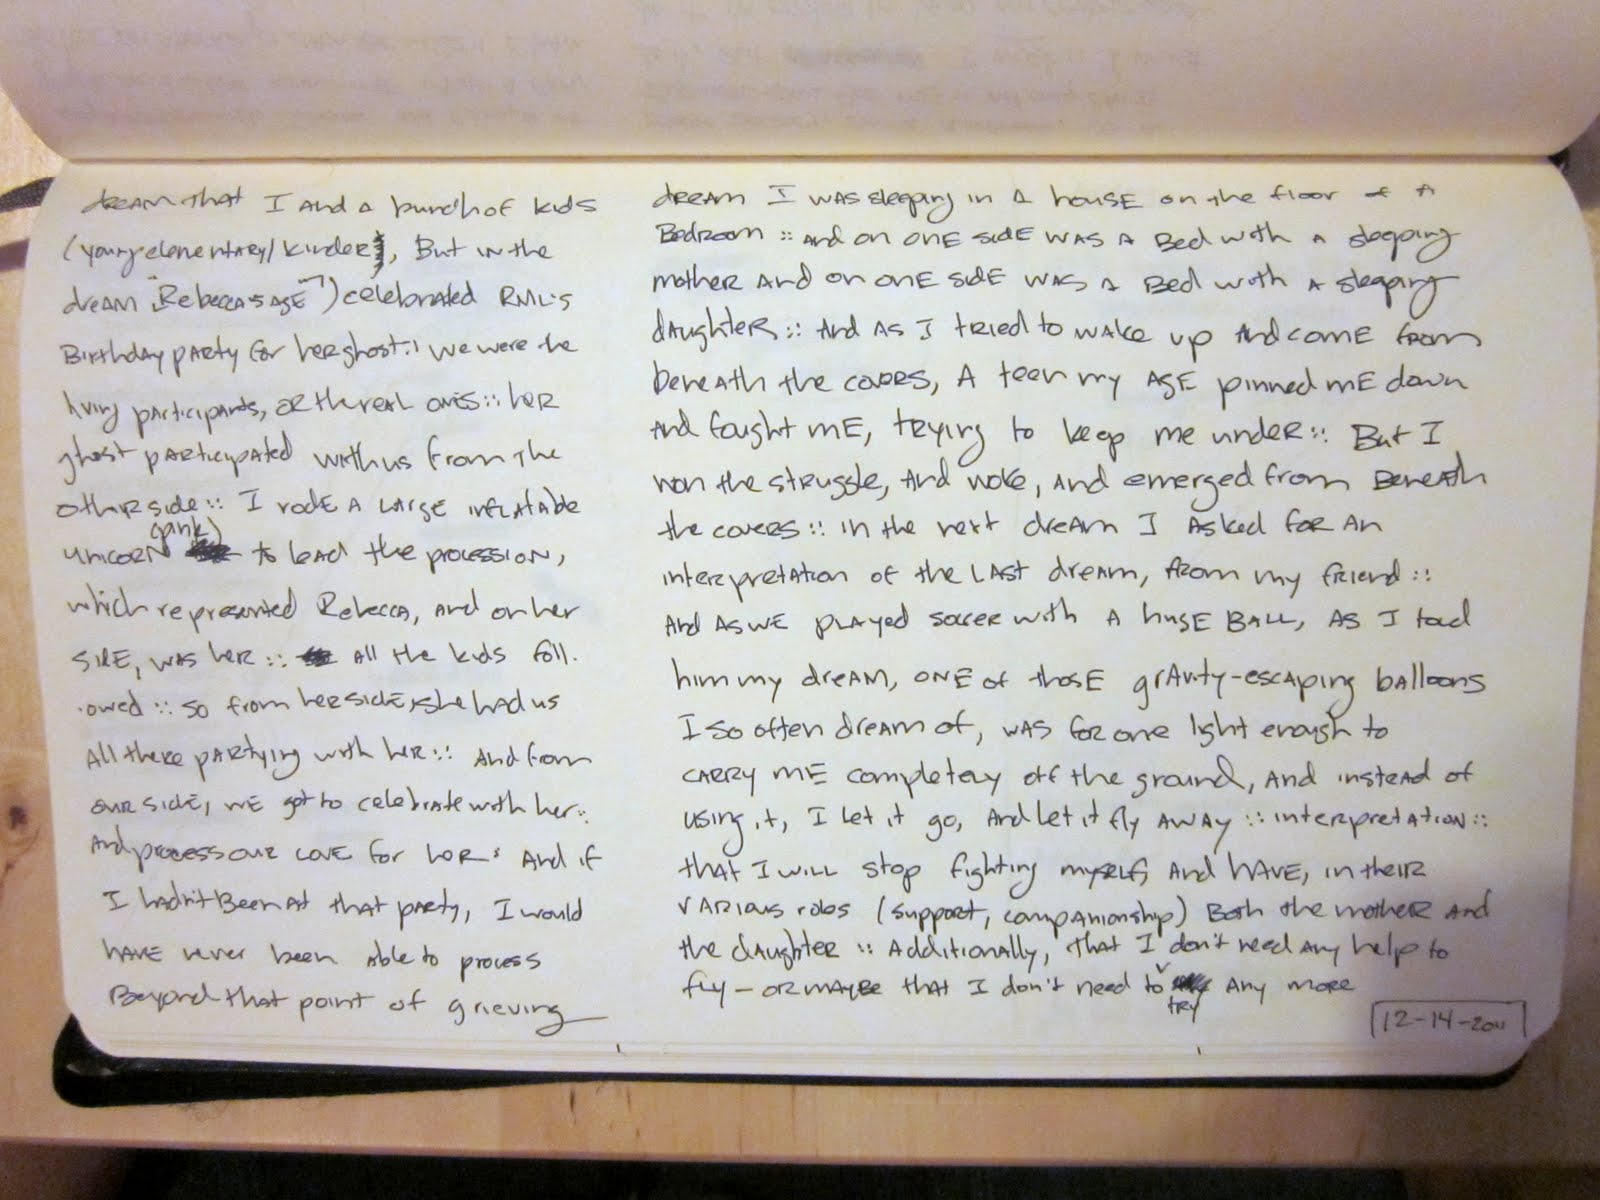 dream that I and a bunch of kids
(young elementary/kinder), But in the
dream "Rebecca's age") celebrated RML's
Birthday party for her ghost:: we were the
living participants, or the real ones:: her
ghost participated with us from the
other side:: I rode a large inflatable
unicorn (pink) to lead the procession,
which represented Rebecca, and on her
side, was her:: all the kids foll-
owed:: so from her side, she had us
all there partying with her:: and from
our side, we got to celebrate with her::
and process our love for her: and if
I hadn't been at that party, I would
have never been able to process
Beyond that point of grieving
dream I was sleeping in a house on the floor of a
Bedroom:: and on one side was a Bed with a sleeping
mother and on one side was a Bed with a sleeping
daughter:: and as I tried to wake up and come from
beneath the covers, a teen my age pinned me down
and fought me, trying to keep me under:: But I
won the struggle, and woke, and emerged from Beneath
the covers:: in the next dream I asked for an
interpretation of the last dream, from my friend::
and as we played soccer with a huge Ball, as I told
him my dream, one of those gravity-escaping balloons
I so often dream of, was for one light enough to
carry me completely off the ground, and instead of
using it, I let it go, and let it fly away:: interpretation::
that I will stop fighting myself, and have, in their
various roles (support, companionship) Both the mother and
the daughter:: Additionally, that I don't need any help to
fly — or maybe that I don't need to try any more
12-14-2011